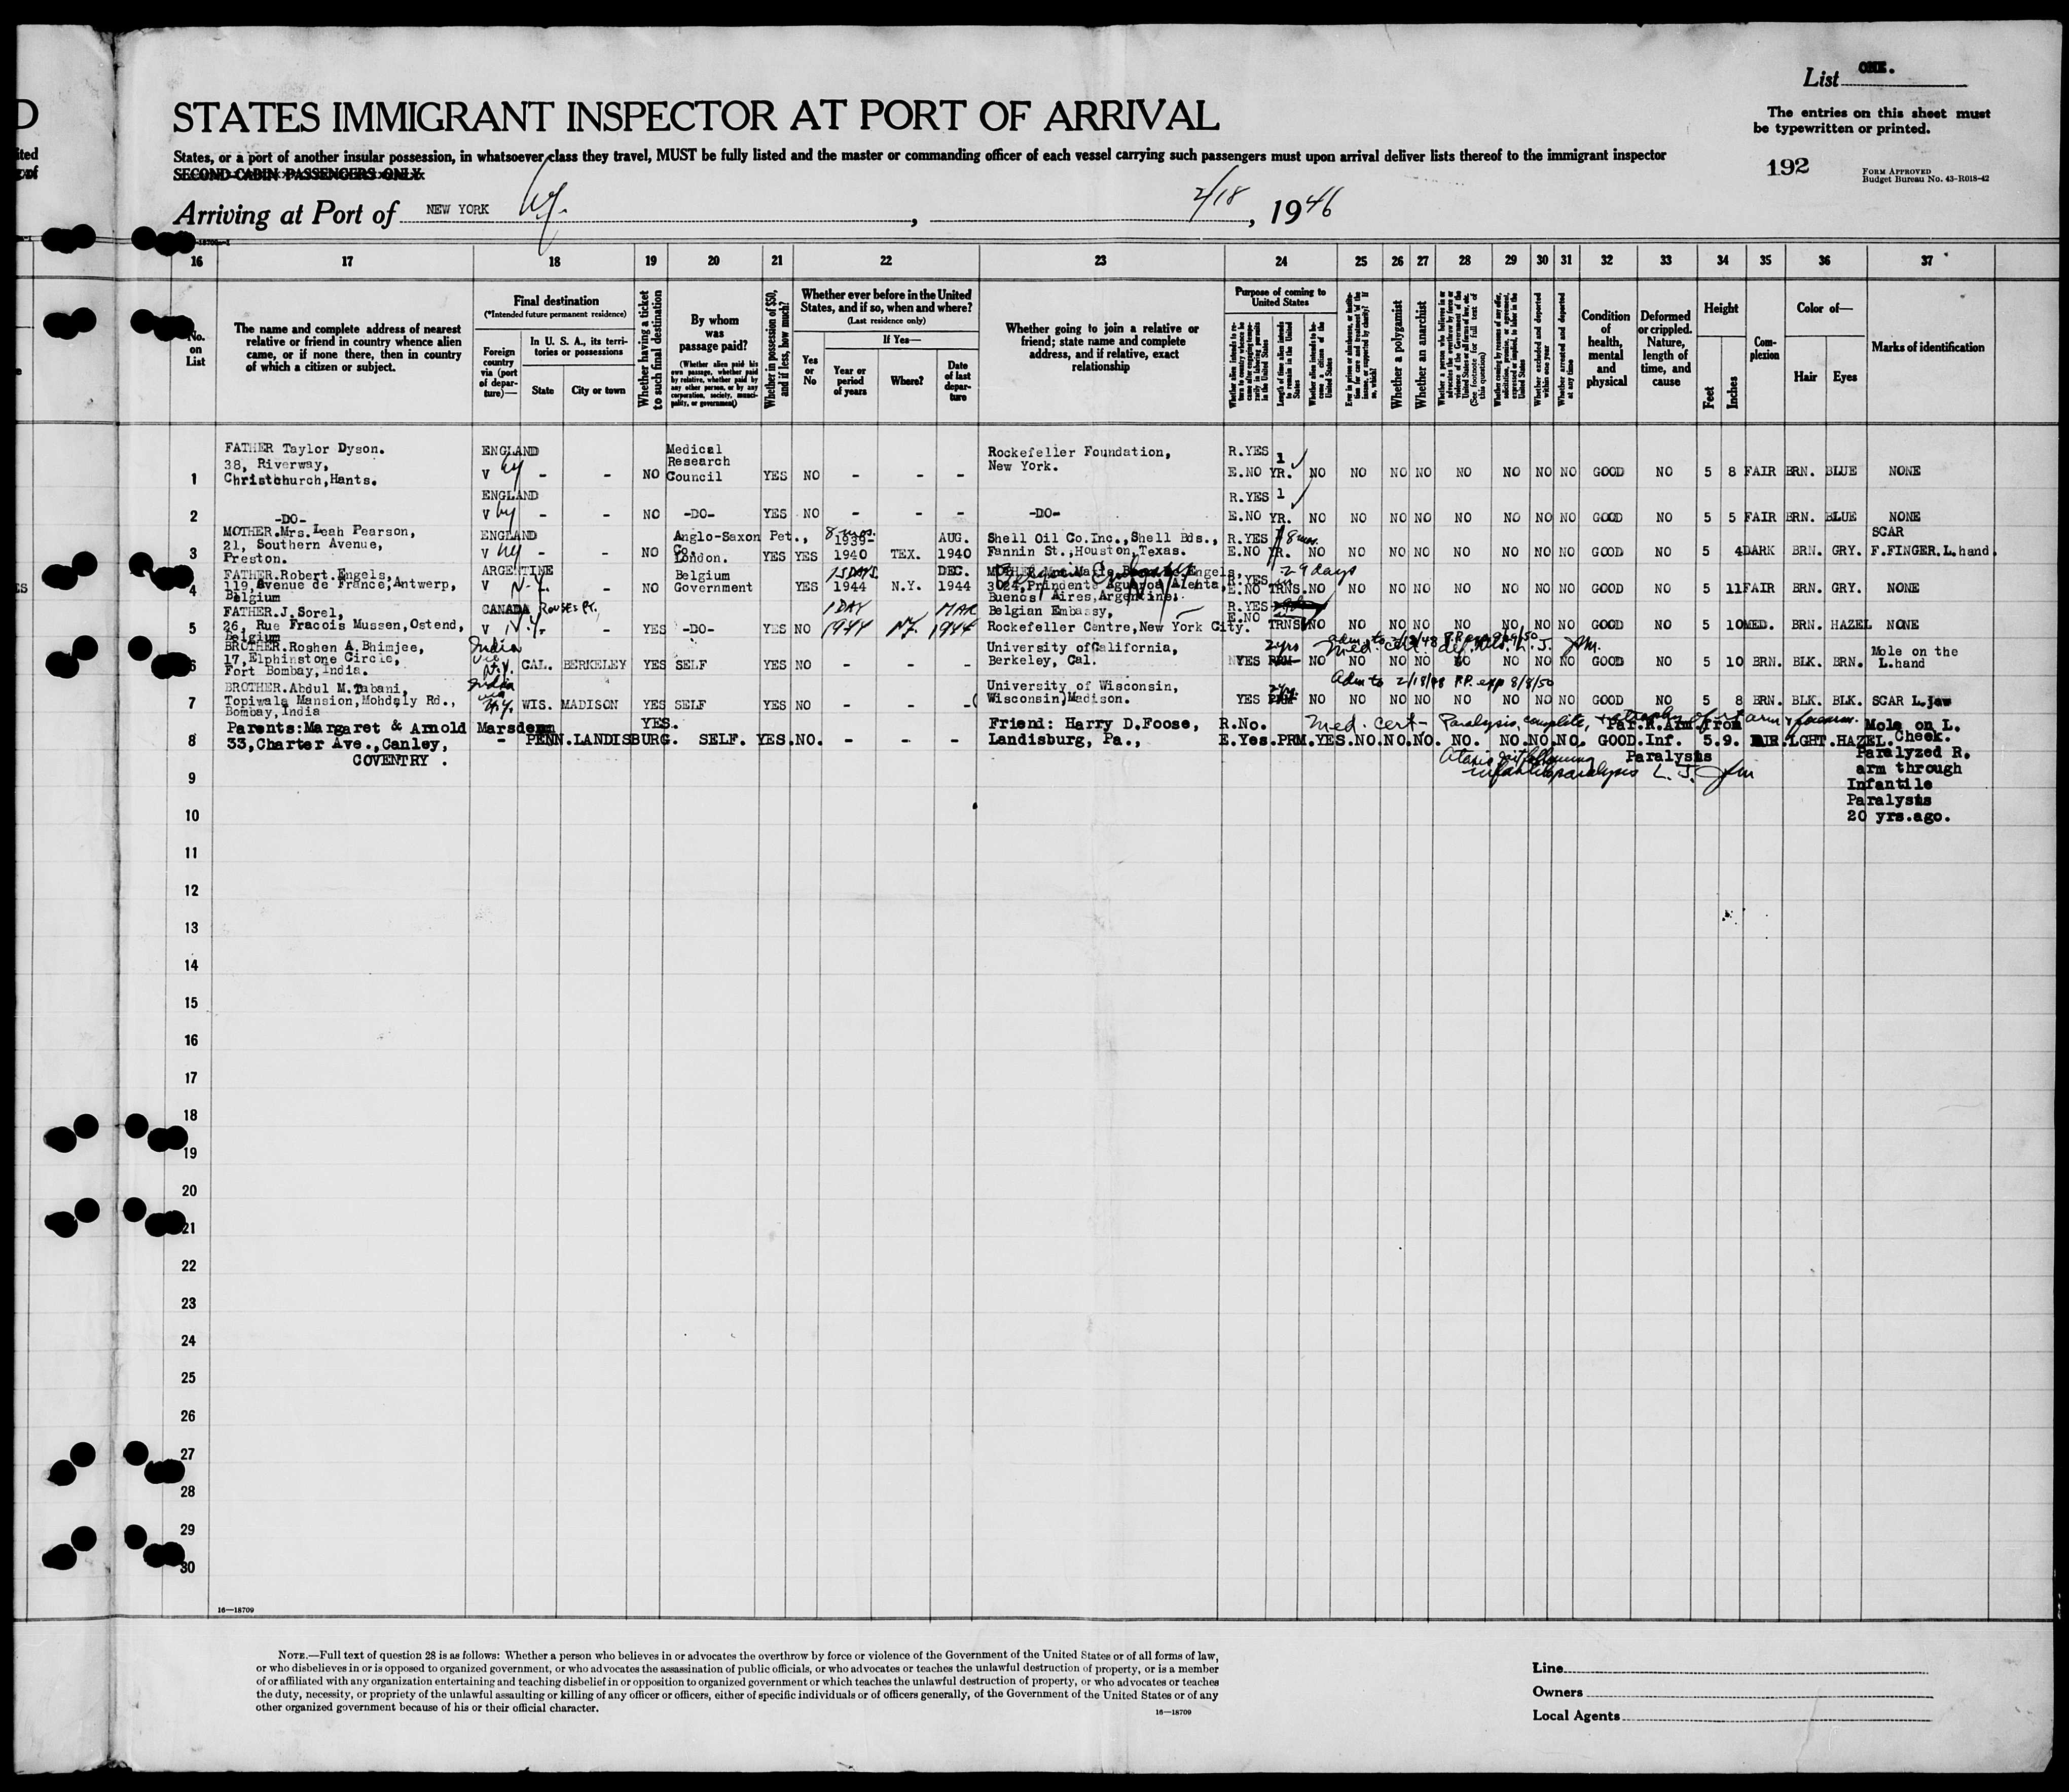 List ONE.
STATES IMMIGRANT INSPECTOR AT PORT OF ARRIVAL
The entries on this sheet must
be typewritten or printed.
States, or a port of another insular possession, in whatsoever class they travel, MUST be fully listed and the master or commanding officer of each vessel carrying such passengers must upon arrival deliver lists thereof to the immigrant inspector
SECOND CABIN PASSENGERS ONLY
192
FORM APPROVED
Budget Bureau No. 43-R018-42
Arriving at Port of NEW YORK , 2/18 , 1946
16 17 18 19 20 21 22 23 24 25 26 27 28 29 30 31 32 33 34 35 36 37
No. on List
The name and complete address of nearest relative or friend in country whence alien came, or if none there, then in country of which a citizen or subject.
Final destination
(*Intended future permanent residence)
Foreign country via (port of departure)—
In U. S. A., its territories or possessions
State
City or town
Whether having a ticket to such final destination
By whom was passage paid?
(Whether alien paid his own passage, whether paid by relative, whether paid by any other person, or by any corporation, society, municipality, or government)
Whether in possession of $50, and if less, how much?
Whether ever before in the United States, and if so, when and where?
(Last residence only)
Yes or No
If Yes—
Year or period of years
Where?
Date of last departure
Whether going to join a relative or friend; state name and complete address, and if relative, exact relationship
Purpose of coming to United States
Length of time alien intends to remain in the United States
Whether alien intends to become a citizen of the United States
Whether a polygamist
Whether an anarchist
Whether excluded and deported within one year
Whether arrested and deported at any time
Condition of health, mental and physical
Deformed or crippled. Nature, length of time, and cause
Height
Feet
Inches
Complexion
Color of—
Hair
Eyes
Marks of identification
1 FATHER Taylor Dyson. 38, Riverway, Christchurch, Hants. ENGLAND V - - NO Medical Research Council YES NO - - - Rockefeller Foundation, New York. R.YES E.NO 1 YR. NO NO NO NO NO NO NO NO GOOD NO 5 8 FAIR BRN. BLUE NONE
2 -DO- ENGLAND V - - NO -DO- YES NO - - - -DO- R.YES E.NO 1 YR. NO NO NO NO NO NO NO NO GOOD NO 5 5 FAIR BRN. BLUE NONE
3 MOTHER.Mrs.Leah Pearson, 21, Southern Avenue, Preston. ENGLAND V - - NO Anglo-Saxon Pet., Co. London. YES YES 1939- 1940 TEX. AUG. 1940 Shell Oil Co.Inc.,Shell Bds., Fannin St.,Houston,Texas. R.YES E.NO YR. 8 mos. NO NO NO NO NO NO NO NO GOOD NO 5 4 DARK BRN. GRY. SCAR F.FINGER.L.hand.
4 FATHER.Robert.Engels, 119,Avenue de France,Antwerp, Belgium ARGENTINE V N.Y. - NO Belgium Government YES 15 DAYS 1944 N.Y. DEC. 1944 Buenos Aires,Argentine. R.YES E.NO 29 days TRNS. NO NO NO NO NO NO NO NO GOOD NO 5 11 FAIR BRN. GRY. NONE
5 FATHER.J.Sorel, 26, Rue Fracois Mussen,Ostend, Belgium CANADA Rouses Pt. V N.Y. - YES -DO- YES NO 1 DAY 1944 N.Y. MAR 1944 Belgian Embassy, Rockefeller Centre,New York City. R.YES E.NO TRNS NO NO NO NO NO NO NO NO GOOD NO 5 10 MED. BRN. HAZEL NONE
6 BROTHER.Roshen A.Bhimjee, 17,Elphinstone Circle, Fort Bombay,India. India via N.Y. CAL. BERKELEY YES SELF YES NO - - - University of California, Berkeley, Cal. YES 2yrs PRM NO NO NO NO NO NO NO NO GOOD NO 5 10 BRN. BLK. BRN. Mole on the L.hand
7 BROTHER.Abdul M.Tabani, Topiwala Mansion,Mohdaly Rd., Bombay,India India via N.Y. WIS. MADISON YES SELF YES NO - - - University of Wisconsin, Wisconsin,Madison. Adm to 2/18/48 P.P. exp 8/8/50 YES 2yrs NO NO NO NO NO NO NO NO GOOD NO 5 8 BRN. BLK. BLK. SCAR L.jaw
8 Parents:Margaret & Arnold Marsdenn 33,Charter Ave.,Canley, COVENTRY . - PENN.LANDISBURG. YES. SELF. YES.NO. - - - Friend: Harry D.Foose, Landisburg, Pa., R.No. E.Yes.PRM.YES.NO.NO.NO. NO. NO.NO.NO. GOOD. Par.R.Arm from Inf. Paralysis 5.9. LGHT.HAZEL. Mole on L. Cheek. Paralyzed R. arm through Infantile Paralysis 20 yrs.ago.
Med. Cert- Paralysis, complete, + atrophy of rt arm & forearm.
infantile paralysis L. J.
9
10
11
12
13
14
15
16
17
18
19
20
21
22
23
24
25
26
27
28
29
30
16—18709
NOTE.—Full text of question 28 is as follows: Whether a person who believes in or advocates the overthrow by force or violence of the Government of the United States or of all forms of law,
or who disbelieves in or is opposed to organized government, or who advocates the assassination of public officials, or who advocates or teaches the unlawful destruction of property, or is a member
of or affiliated with any organization entertaining and teaching disbelief in or opposition to organized government or which teaches the unlawful destruction of property, or who advocates or teaches
the duty, necessity, or propriety of the unlawful assaulting or killing of any officer or officers, either of specific individuals or of officers generally, of the Government of the United States or of any
other organized government because of his or their official character.
16—18709
Line
Owners
Local Agents